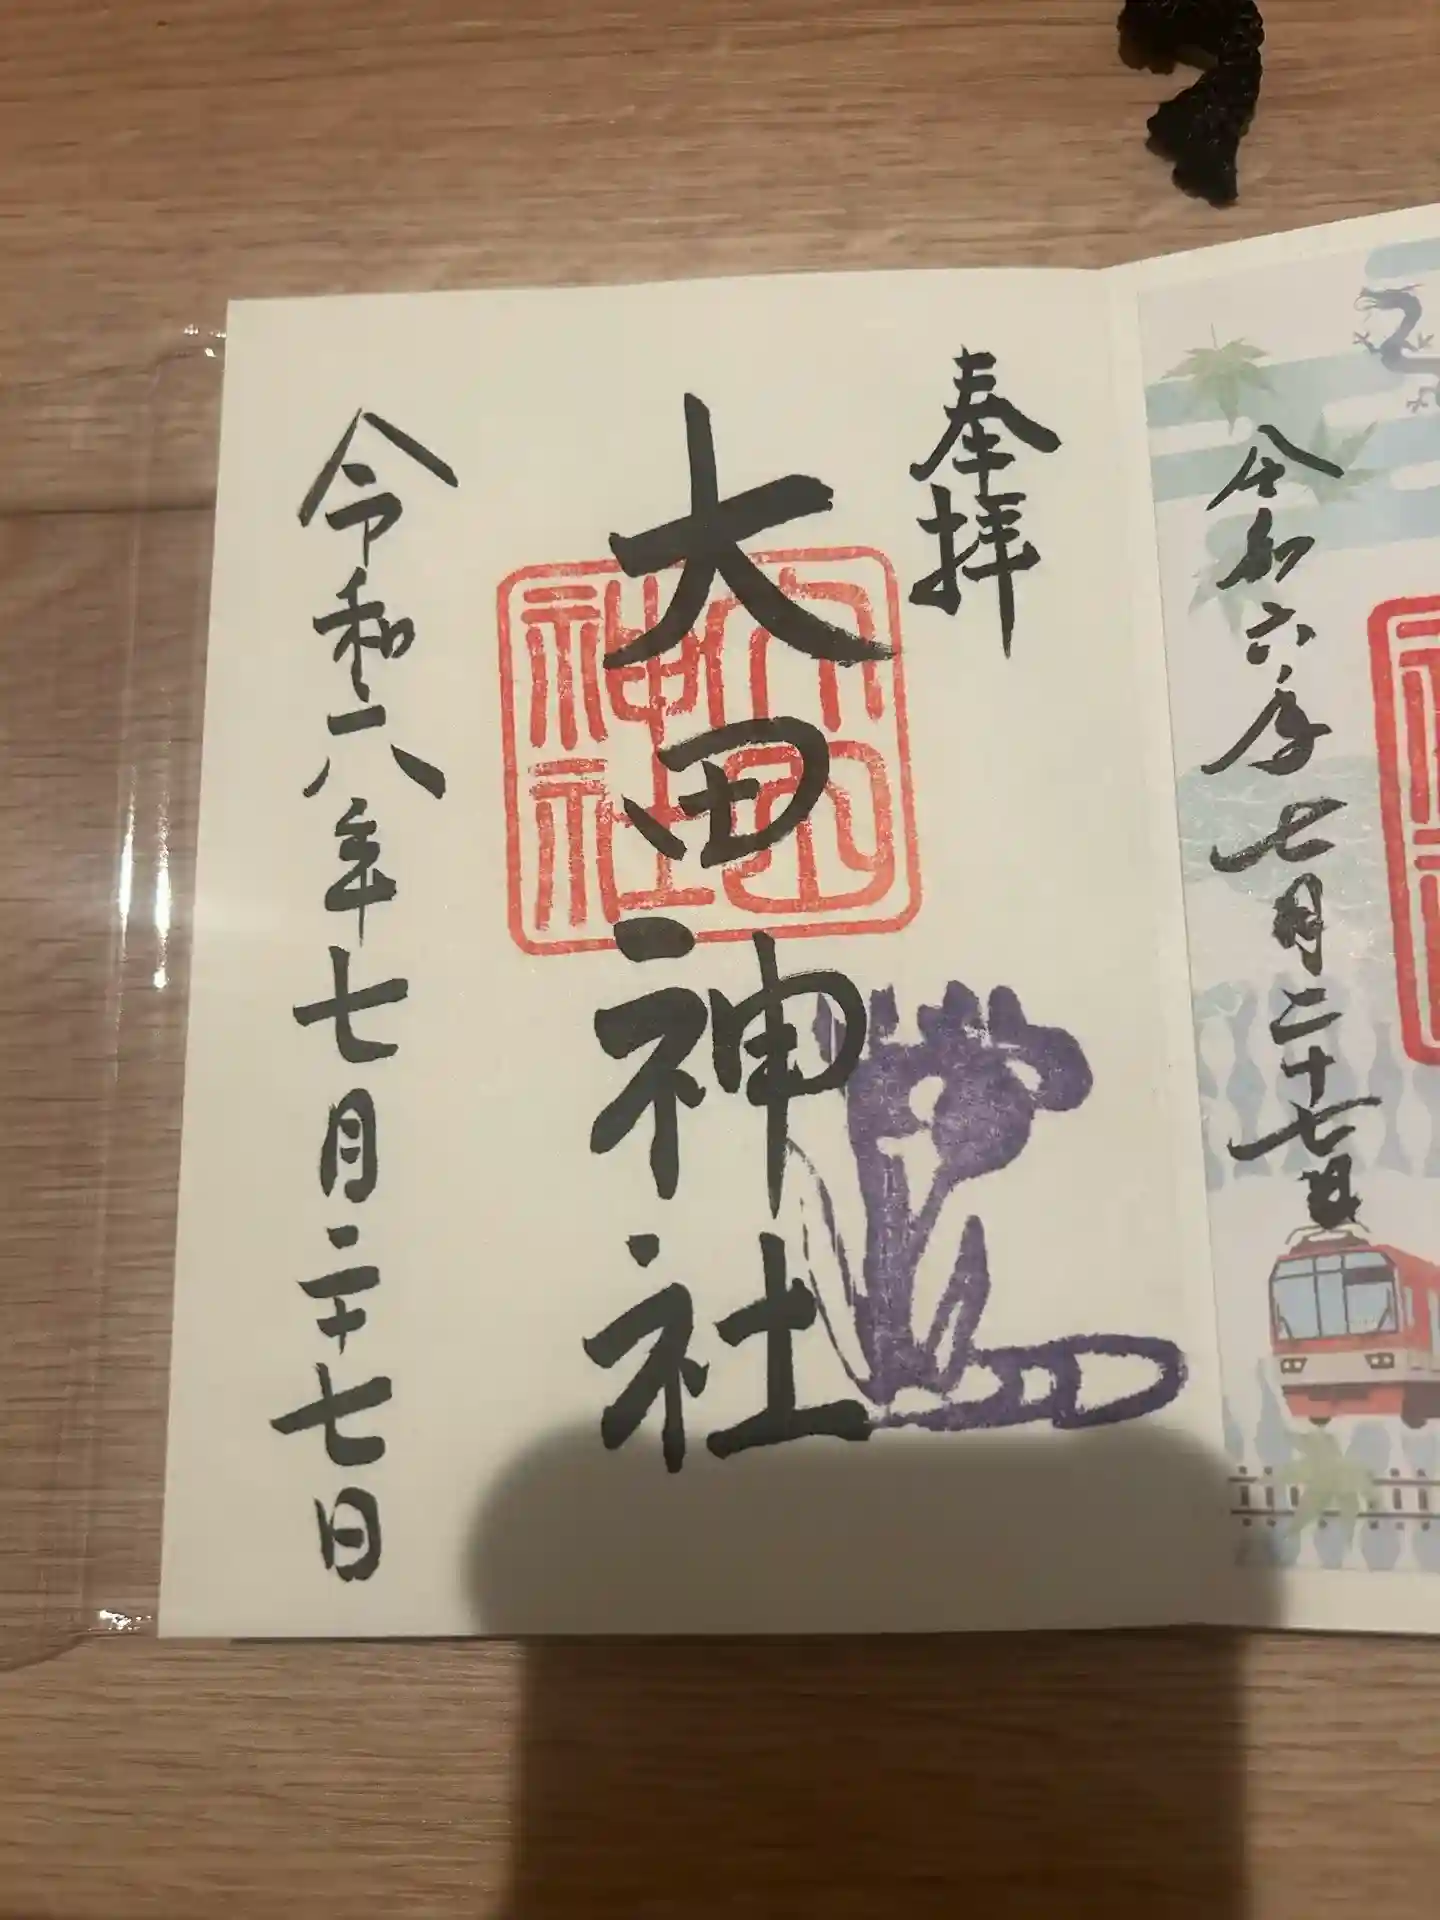 令和六年七月二十七日
奉拝
大田神社
大田神社
令和六年七月二十七日